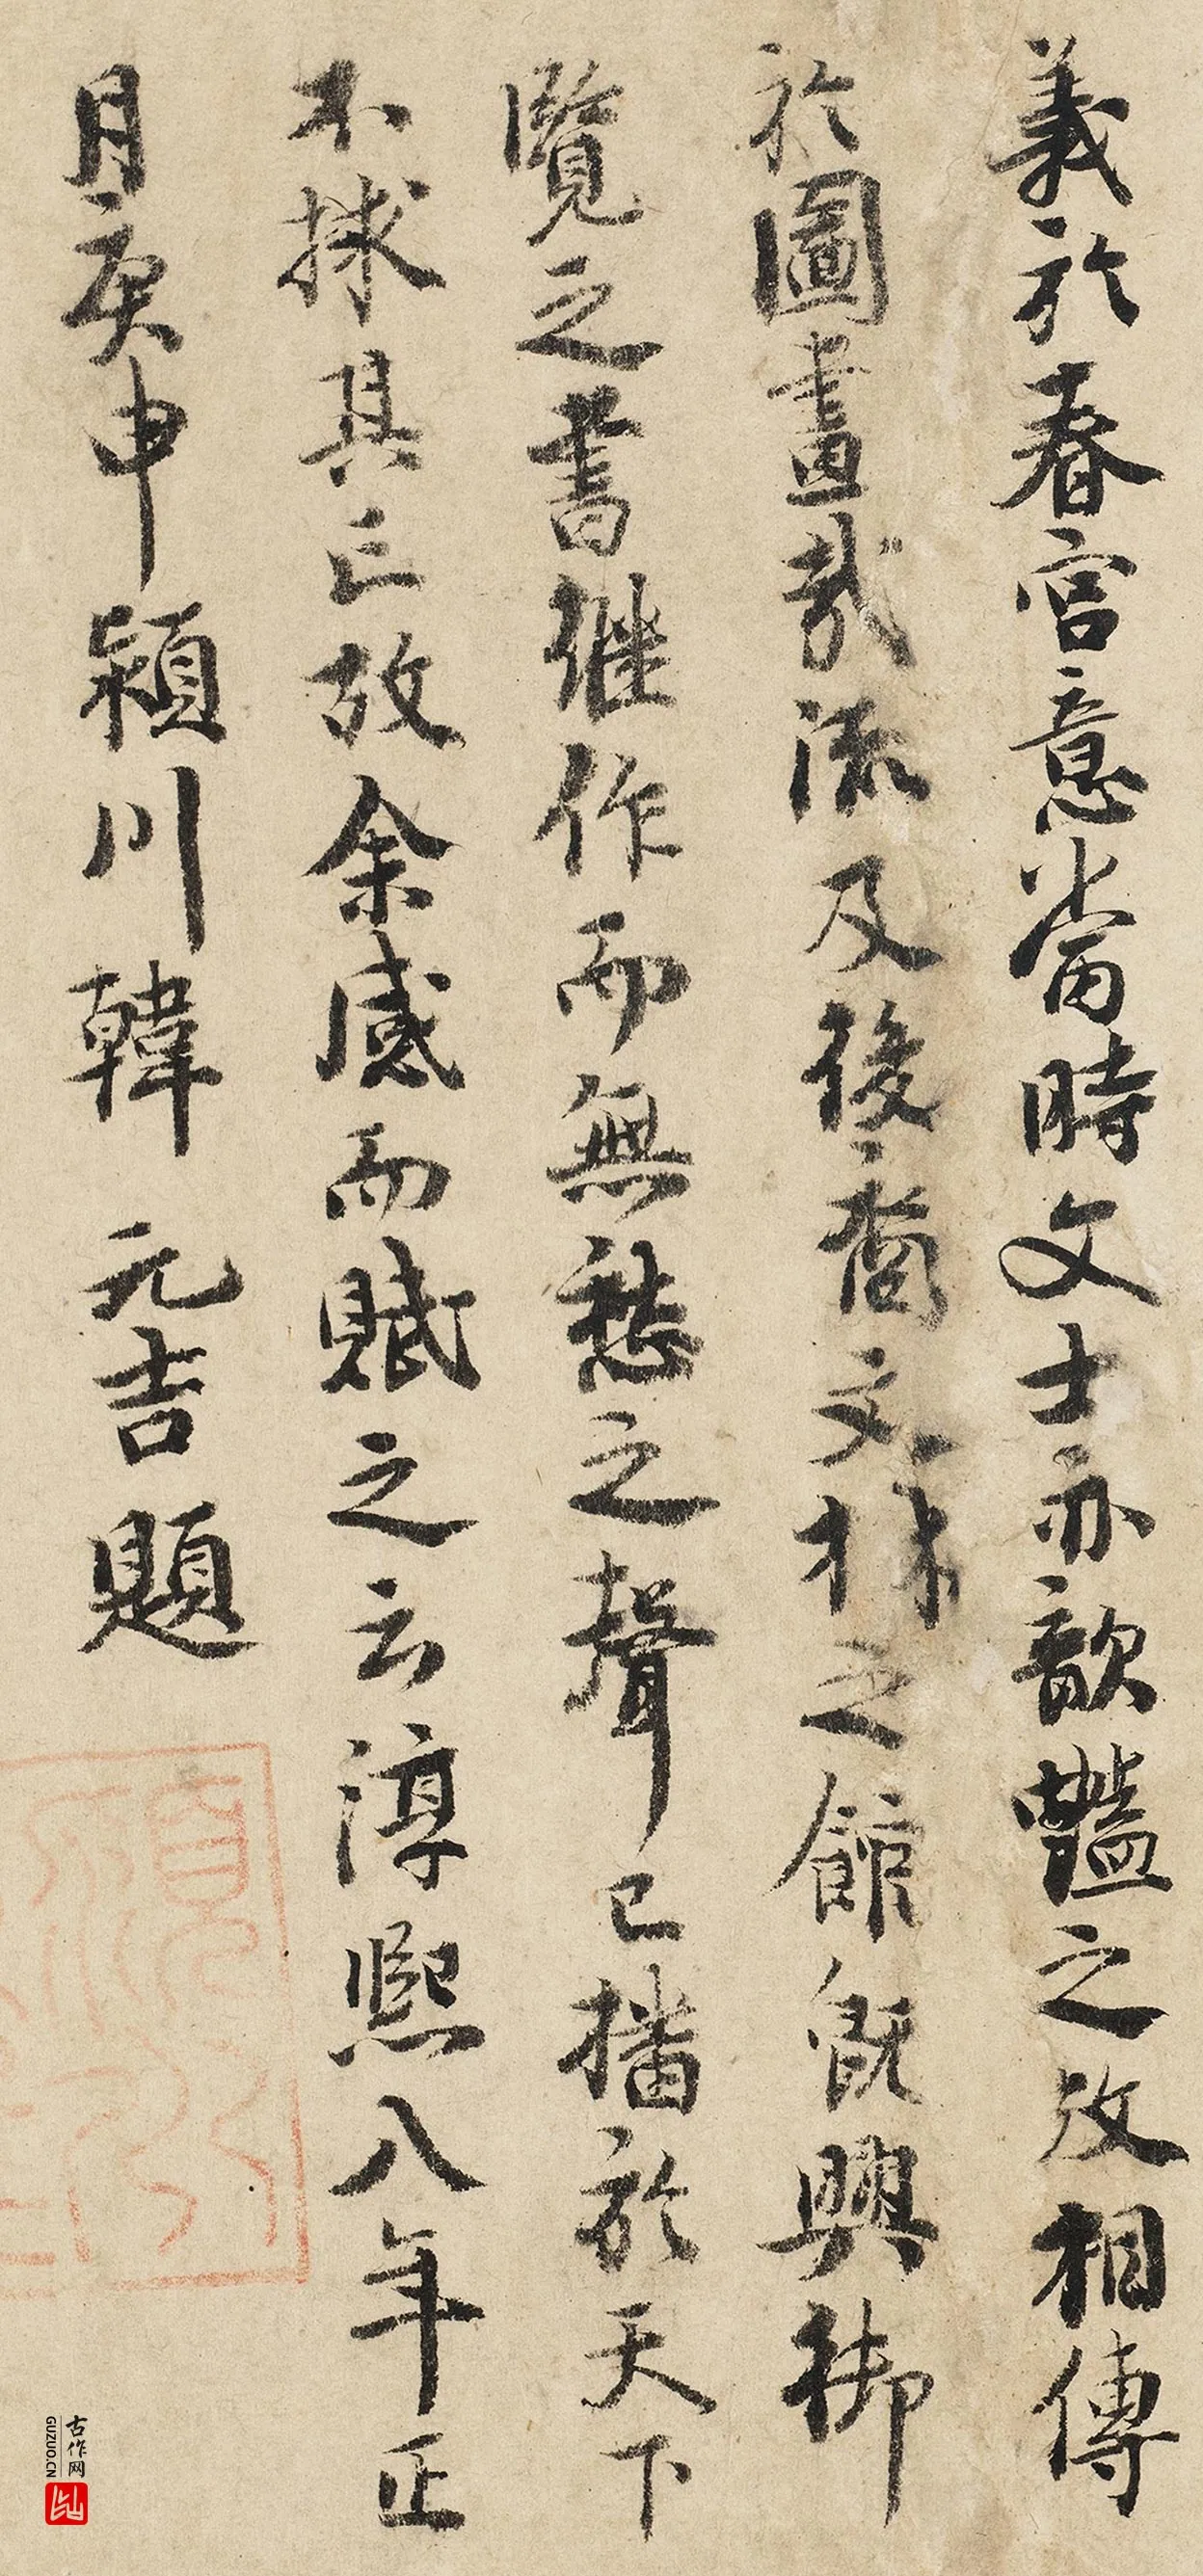 義於春宮意當時文士亦歆豔之故相傳
於圖畫哉流及後裔文林之館既興御
覽之書繼作而無愁之聲已播於天下
不捄其亡故余感而賦之云淳熙八年正
月庚申潁川韓元吉題
古作网
GUZUO.CN